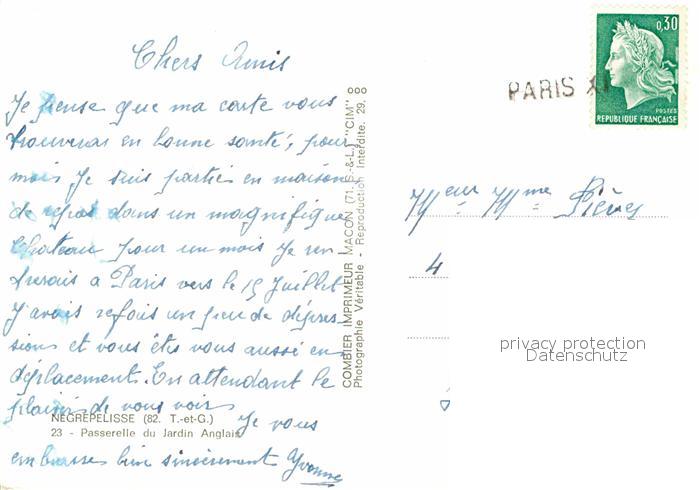 Chers Amis
Je pense que ma carte vous
trouveras en bonne santé, pour
mois je suis partie en maison
de repos dans un magnifique
Chateau pour un mois je ren
trerais a Paris vers le 15 Juillet
J'avais refois un peu de dépres
sions et vous êtes vous aussi en
déplacement. En attendant le
plaisir de vous voir
Je vous
embrasse bien sincèrement Yvonne
NÉGREPELISSE (82. T.-et-G.)
23 - Passerelle du Jardin Anglais
COMBIER IMPRIMEUR MACON (71. S.-&-L.) "CIM"
Photographie Véritable - Reproduction Interdite. 29.
PARIS XI
0,30
POSTES
REPUBLIQUE FRANÇAISE
Meur Mme Pièves
4
privacy protection
Datenschutz